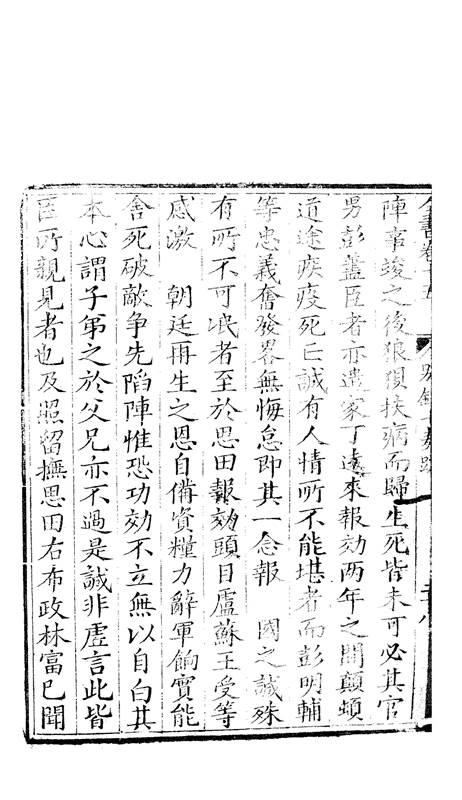 陣事竣之後狼狽扶病而歸生死皆未可必其官
男彭藎臣者亦遣家丁遠來報効兩年之間顛頓
道途疾疫死亡誠有人情所不能堪者而彭明輔
等忠義奮發畧無悔怠即其一念報 國之誠殊
有所不可泯者至於思田報効頭目盧蘇王受等
感激 朝廷再生之恩自備資糧力辭軍餉實能
舍死破敵争先陷陣惟恐功効不立無以自白其
本心謂子弟之於父兄亦不過是誠非虛言此皆
臣所親見者也及照留撫思田右布政林富已聞